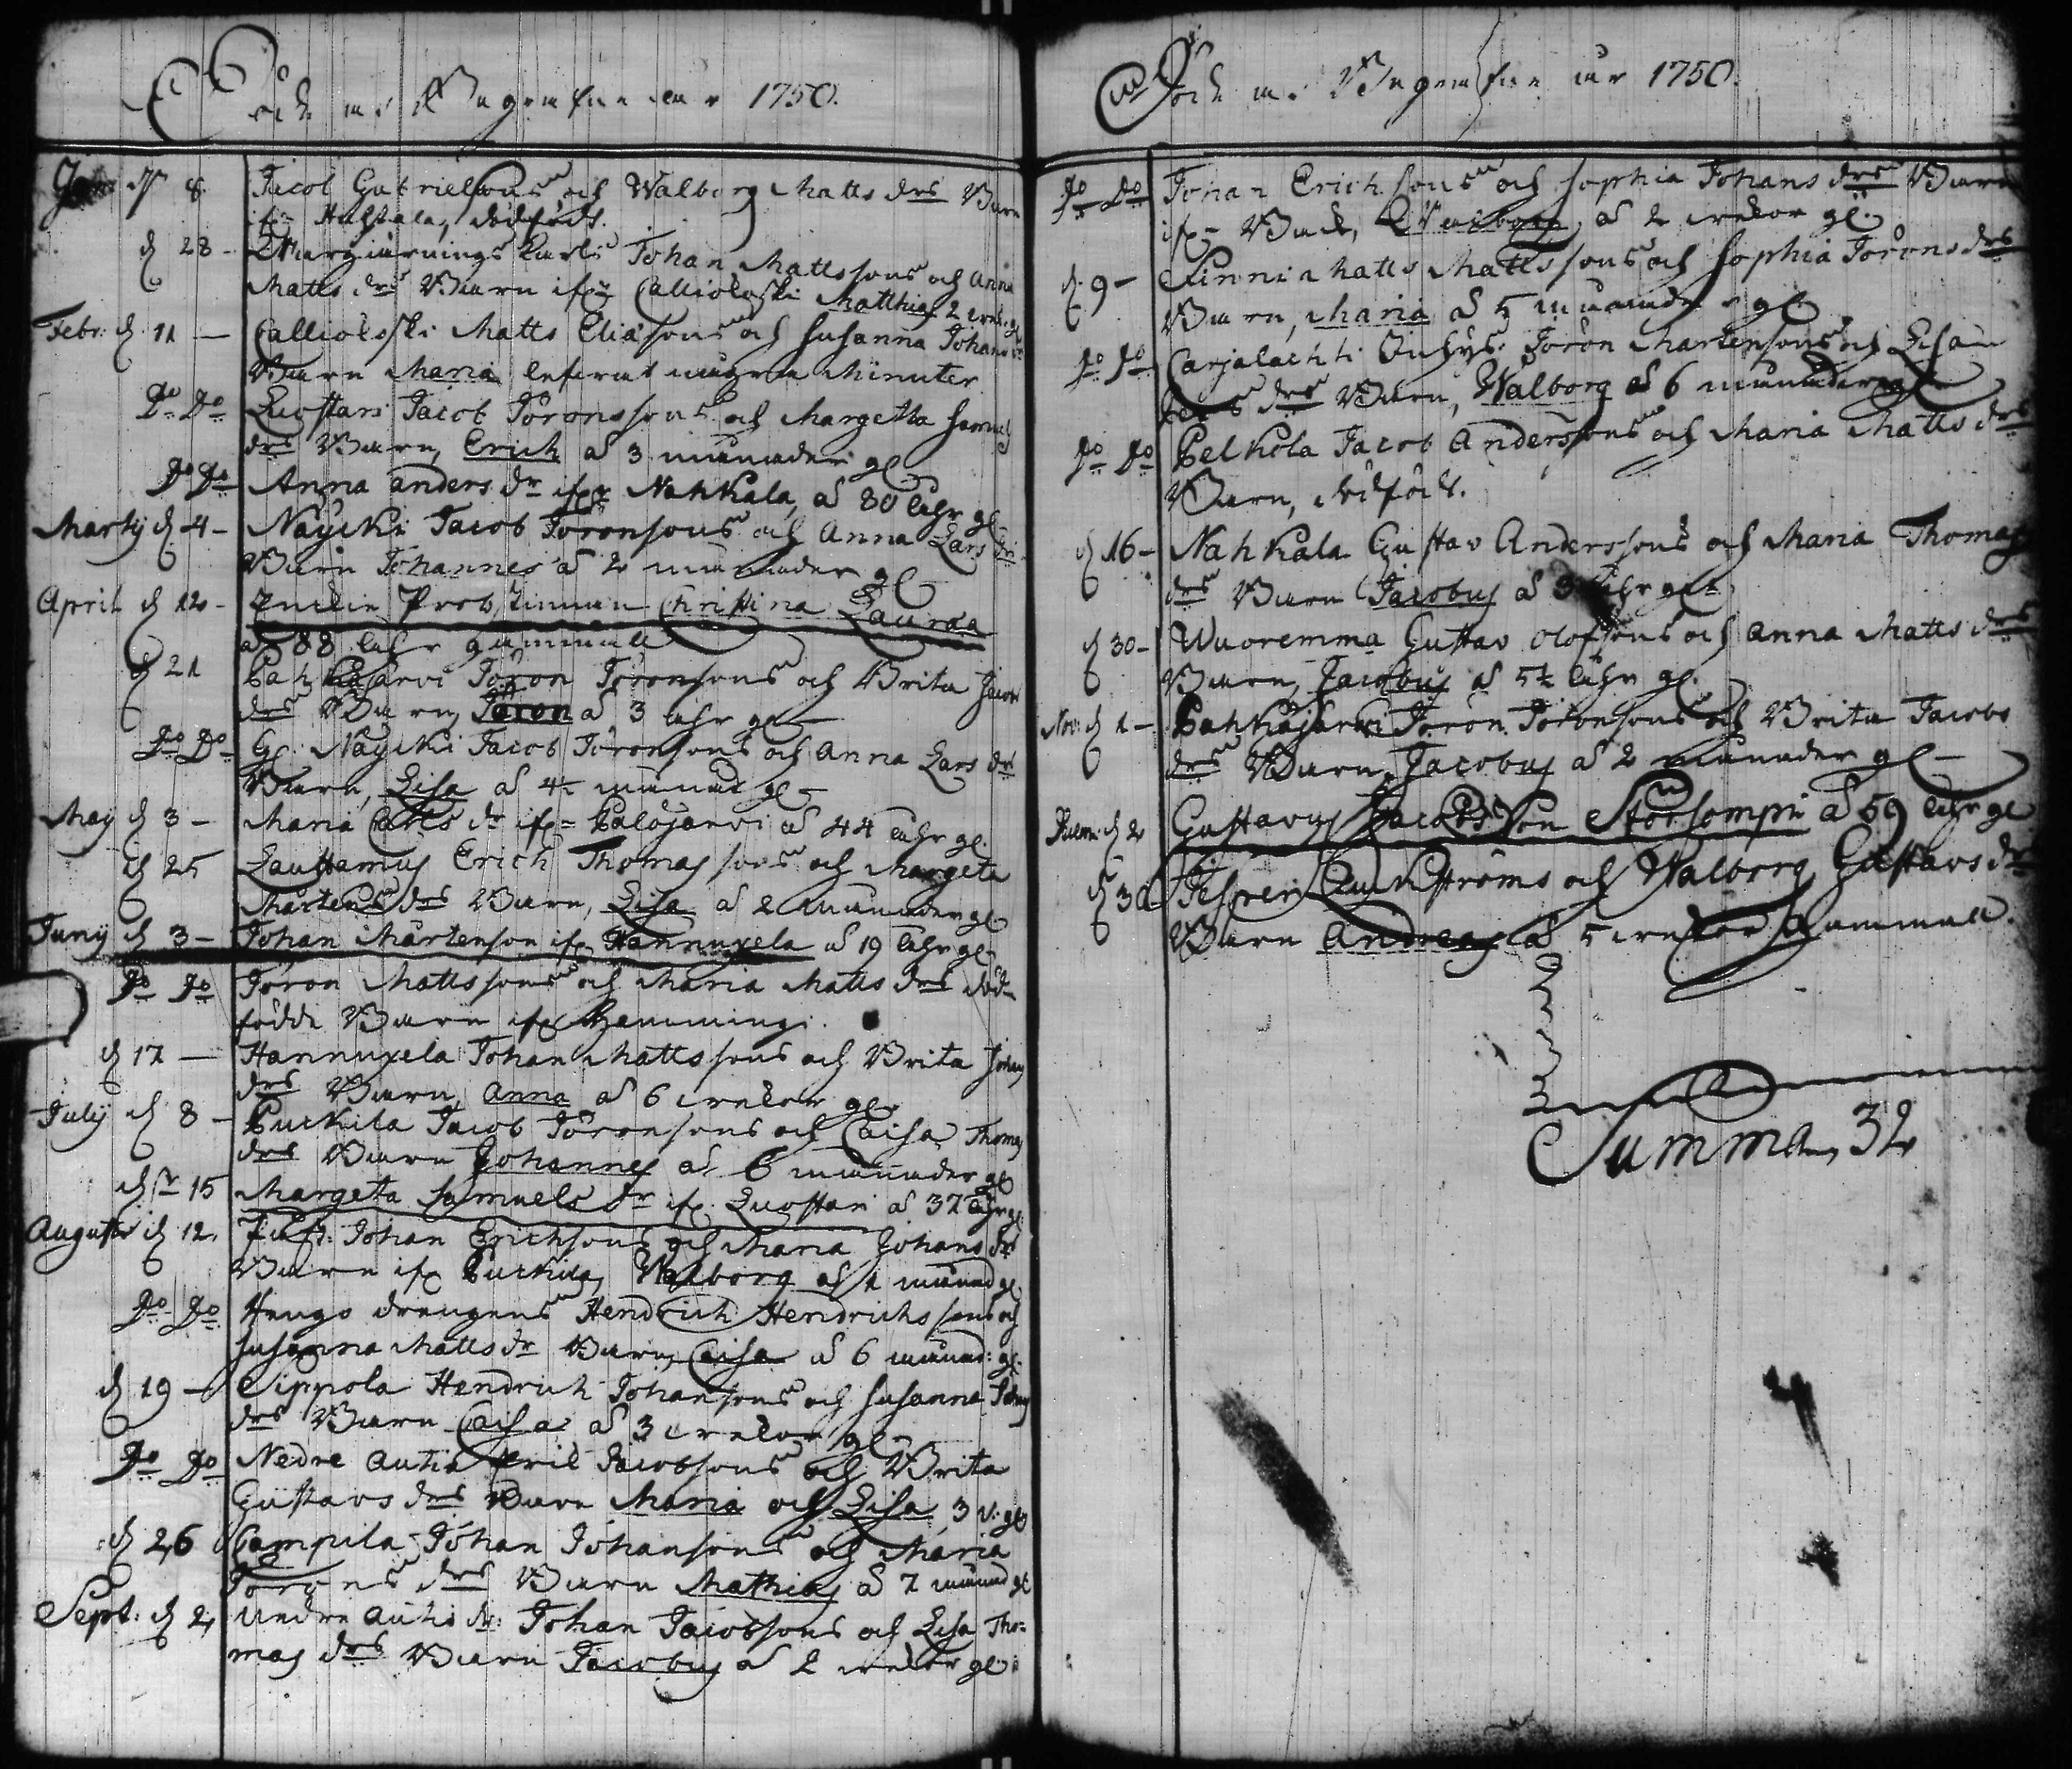 Döde och Begrafne åår 1750.
Jan d 8. Jacob Gabrielsons och Walborg Matts drs Barn
ifr. Huhtala, dödfödt.
d 28 - Johan Mattssons och Anna
Matts drs Barn ifr Callioloski Matthias 2 wek. gl
Febr: d. 11 — Callioloski Matts Eliæsons och Susanna Johans drs
Barn Maria lefwat några Minuter
Do Do Luostari Jacob Jöranssons och Margetha Samuels
drs Barn, Erich af 3 månader gl
Do Do Anna Anders dr ifr Nahkala, af 80 åhr gl
Martij d. 4 - Näycki Jacob Jöransons och Anna Lars dr
Barn Johannes af 2 månader gl
April d 12 - Enckie Prob, Christina Lauræa
af 88 åhr gammal
d 21 Pahkajärvi Jöran Jöransons och Brita Jacobs
drs Barn, Jöran af 3 åhr gl —
Do Do G. Näycki Jacob Jöransons och Anna Lars drs
Barn, Lisa af 4½ månad gl -
May d 3 — Maria dr ifr Palojarvi af 44 åhr gl.
d 25 Lauttamus Erich Thomas sons och Margeta
Mårtens drs Barn, Lisa af 2 månader gl
Junij d 3 - Johan Mårtenson ifr Hannuxela af 19 åhr gl
Do Do Jöran Mattssons och Maria Matts drs död-
födde Barn ifr Hemmingi.
d 17 — Hannuxela Johan Mattssons och Brita Johans
drs Barn, Anna af 6 wekor gl.
Julij d 8 - Purkila Jacob Jöransons och Caisa Thomas
drs Barn Johannes af 6 månader gl
d 15 Margeta Samuels dr ifr Luostari af 37 åhr gl.
Augusti d 12. Johan Erichsons och Maria Johans drs
Barn ifr Purkila, Walborg af 1 månad gl
Do Do drengens Hendrich Hendrichs sons och
Susanna Matts dr Barn, Caisa af 6 månad: gl.
d 19 - Sippola Hendrich Johansons och Susanna Johans
drs Barn Caisa af 3 wekor gl -
Do Do Nedre Autio Eric Jacobsons och Brita
Gustavs drs Barn Maria och Lisa, 3 v. gl
d 26 Lampila Johan Johansons och Maria
Jörans drs Barn Mathias af 7 månad gl
Sept: d 2 Nedre Autio Johan Jacobsons och Lisa Tho=
mas drs Barn Jacobus af 2 wekor gl.
Döde och Begrafne åår 1750.
Do Do Johan Erichsons och Sophia Johans drs Barn
ifr Walborg af 2 wekor gl.
d. 9 - Pinni Matts Mattssons och Sophia Jörans drs
Barn, Maria af 5 månader gl
Do Do Carjalachti Jöran Mårtensons och Lisa
drs Barn, Walborg af 6 månader gl
Do Do Pelkola Jacob Anderssons och Maria Matts drs
Barn, dödfödt.
d 16 - Nahkala Gustav Anderssons och Maria Thomas
drs Barn Jacobus af 3 åhr gl.
d 30 - Wuoremma Gustav Olofsons och Anna Matts drs
Barn, Jacobus af 5½ åhr gl.
Nov: d 1 - Pahkajärvi Jöran Jöransons och Brita Jacobs
drs Barn, Jacobus af 2 månader gl -
d 2 Gustavus Jacobs Son Storsompi af 59 åhr gl
d 30 Jesper och Walborg Gustavs drs
Barn Andreas af 5 wekor Gammal.
Summa, 32